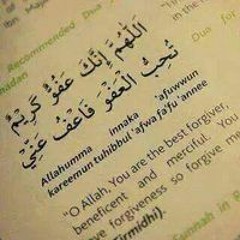 Recommended Dua
Dua for
اللَّهُمَّ إِنَّكَ عَفُوٌّ كَرِيمٌ
تُحِبُّ الْعَفْوَ فَاعْفُ عَنِّي
Allahumma innaka 'afuwwun
kareemun tuhibbul 'afwa fa'fu 'annee
"O Allah, You are the best forgiver,
beneficent and merciful. You
forgiveness so forgive me
irmidhi).
unnah in R